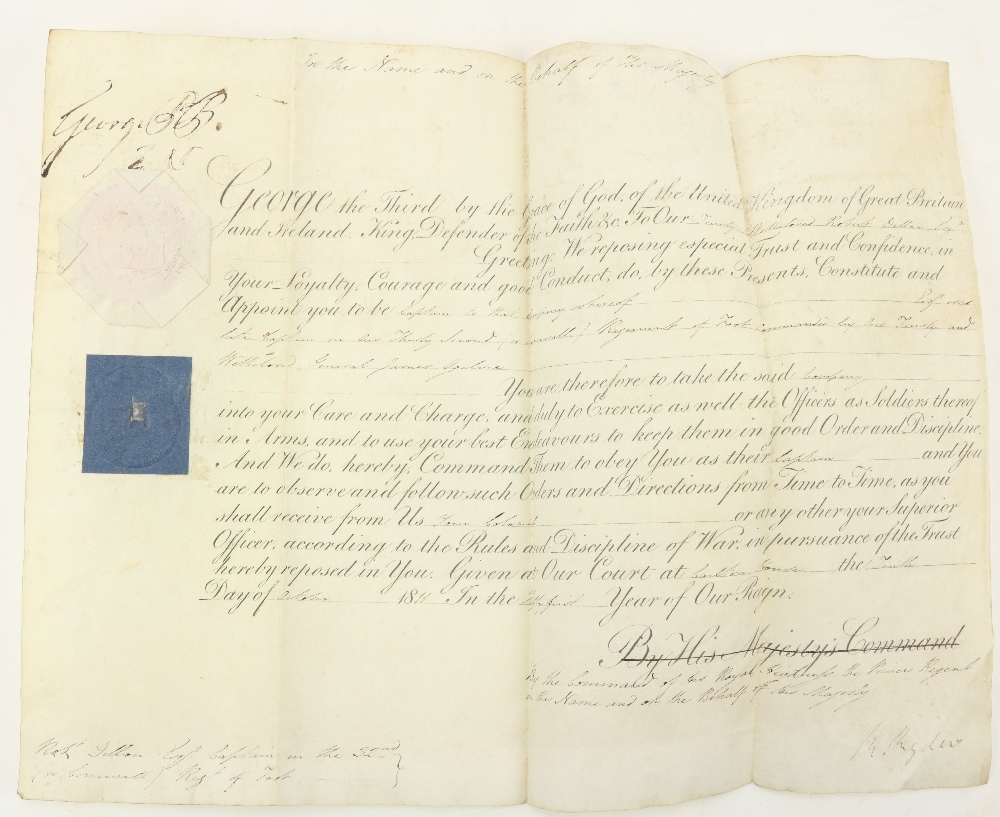 In the Name and on the Behalf of His Majesty
George P R.
George the Third by the Grace of God, of the United Kingdom of Great Britain
and Ireland, King, Defender of the Faith &c. To Our Trusty Wellbeloved Robert Dillon Esqr
Greeting: We reposing especial Trust and Confidence, in
Your Loyalty, Courage and good Conduct, do, by these Presents, Constitute and
Appoint you to be Captain of that Company whereof Esqr was
late Captain in Our Thirty Second Regiment of Foot Commanded by Our Trusty and
Wellbeloved General James Ogilvie
You are therefore to take the said Company
into your Care and Charge, and duly to Exercise as well the Officers as Soldiers thereof
in Arms, and to use your best Endeavours to keep them in good Order and Discipline,
And We do, hereby, Command Them to obey You as their Captain and You
are to observe and follow such Orders and Directions from Time to Time, as you
shall receive from Us Your Colonel or any other your Superior
Officer, according to the Rules and Discipline of War, in pursuance of the Trust
hereby reposed in You. Given at Our Court at Carlton House the Tenth
Day of October 1811 In the Year of Our Reign.
By His Majesty's Command
By the Command of His Royal Highness the Prince Regent
in the Name and on the Behalf of His Majesty
R Ryder
Robt Dillon Esqr Captain in the 32nd
(or Cornwall) Regt of Foot